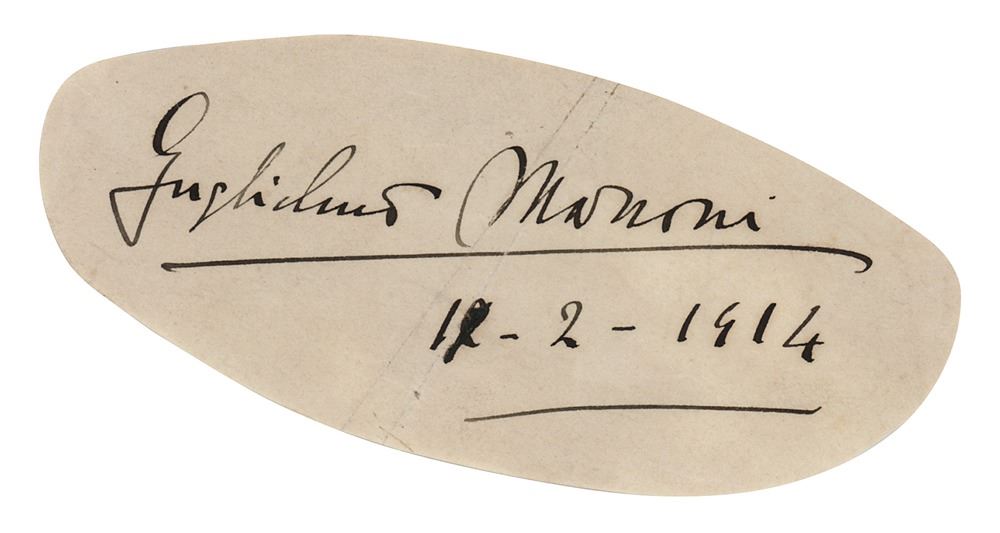 Guglielmo Marconi
12 - 2 - 1914